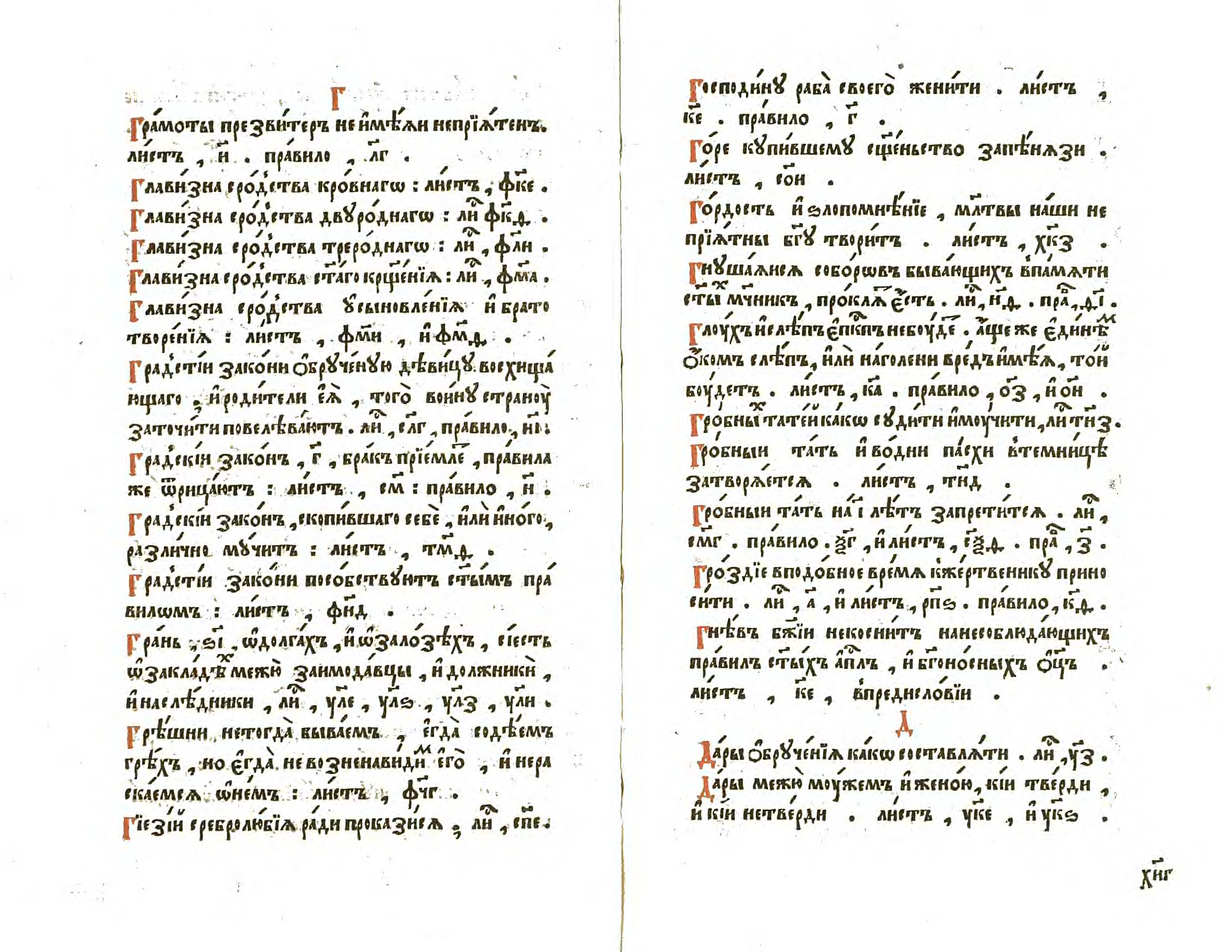 Г
Гра́моты презви́теръ не и҆мѣ́ѧи непрїѧ́тенъ.
ли́стъ , и҃ . пра́вило , лг҃ .
Глави́зна сро́дства кро́внагѡ : ли́стъ , фк҃е .
Глави́зна сро́дства двꙋро́днагѡ : ли́ , фк҃д .
Глави́зна сро́дства треро́днагѡ : ли́ , фл҃и .
Глави́зна сро́дства ст҃а́го крщ҃е́нїѧ : ли́ , фм҃а .
Глави́зна сро́дства ᲂу҆сыновле́нїѧ и҆ брато
творе́нїѧ : ли́стъ , фм҃и , и҆ фм҃д .
Градстїи зако́ни ѻ҆брꙋче́нꙋю дѣви́цꙋ восхища́
ющаго , и҆ роди́тели є҆ѧ̀ , того̀ во́инꙋ страноꙋ̀
заточи́ти повелѣва́ютъ . ли́ , сл҃г , пра́вило , н҃і .
Гра́дскїи зако́нъ , г҃ , бра́къ прїе́мле , пра́вила
же ѿрица́ютъ : ли́стъ , см҃ : пра́вило , н҃ .
Гра́дскїи зако́нъ , скопи́вшаго себѐ , и҆лѝ и҆но́го ,
разли́чно мꙋ́читъ : ли́стъ , тм҃д .
Гра́дстїи зако́ни посо́бствꙋютъ ст҃ы́мъ пра́
вилѡмъ : ли́стъ , фн҃д .
Гра́нь , ѕ҃і , ѡ҆долга́хъ , и҆ ѡ҆зало́зѣхъ , сіесть
ѡ҆закла́дѣⷯ межю̀ заимода́вцы , и҆ должникѝ ,
и҆ наслѣ́дники , ли́ , ул҃е , ул҃ѕ , ул҃з , ул҃и .
Грѣ́шни нетогда̀ быва́емъ , є҆гда̀ содѣ́емъ
грѣ́хъ , но є҆гда̀ не возненави́диⷨ є҆го̀ , и҆ нера
ска́емсѧ ѡ҆не́мъ : ли́стъ , фч҃г .
Гїезі́й сребролю́бїѧ ра́ди прокази́сѧ , ли́ , сп҃е .
Господи́нꙋ раба̀ своего̀ жени́ти . ли́стъ ,
к҃е . пра́вило , г҃ .
Го́ре кꙋпи́вшемꙋ сщ҃е́ньство запѣ́нѧзи .
ли́стъ , со҃и .
Го́рдость и҆ ѕлопомнѣ́нїе , мл҃твы на́ши не
прїѧ́тны бг҃ꙋ твори́тъ . ли́стъ , хк҃з .
Гнꙋша́ѧисѧ собо́рѡвъ быва́ющихъ впа́мѧти
ст҃ыⷯ мч҃никъ , про́клѧⷮ є҆́сть . ли́ , н҃д . праⷡ , д҃і .
Глоу́хъ и҆ слѣ́пъ є҆п҃кпъ небоу́деⷮ . а҆́ще же є҆ди́нѣⷨ
ѻ҆́комъ слѣ́пъ , и҆лѝ на́голени вре́дъ и҆мѣ́ѧ , то́й
боу́детъ . ли́стъ , к҃а . пра́вило , о҃з , и҆ о҃и .
Гро́бныⷯ тате́й ка́кѡ сꙋди́ти и҆ моу́чити , ли́ тн҃з .
Гро́бныи та́ть и҆ во́дни па́схи втемни́цѣ
затворѧ́етсѧ . ли́стъ , тн҃д .
Гро́бныи та́ть на і҃ лѣ́тъ запрети́тсѧ . ли́ ,
см҃г . пра́вило . ѯ҃г , и҆ ли́стъ , сѯ҃д . праⷡ , з҃ .
Гро́здїе вподо́бное вре́мѧ кже́ртвеникꙋ прино
си́ти . ли́ , а҃ , и҆ ли́стъ , рп҃ѕ . пра́вило , к҃д .
Гнѣ́въ бж҃їи некосни́тъ нанесоблюда́ющихъ
пра́вилъ ст҃ы́хъ а҆п҃лъ , и҆ бг҃оно́сныхъ ѻ҆ц҃ъ .
ли́стъ , к҃е , впредисло́вїи .
Д
Да́ры ѻ҆брꙋче́нїѧ ка́кѡ составлѧ́ти . ли́ , у҃з .
Да́ры межю̀ моу́жемъ и҆ жено́ю , кі́и тве́рди ,
и҆ кі́и нетве́рди . ли́стъ , ук҃е , и҆ ук҃ѕ .
хн҃г